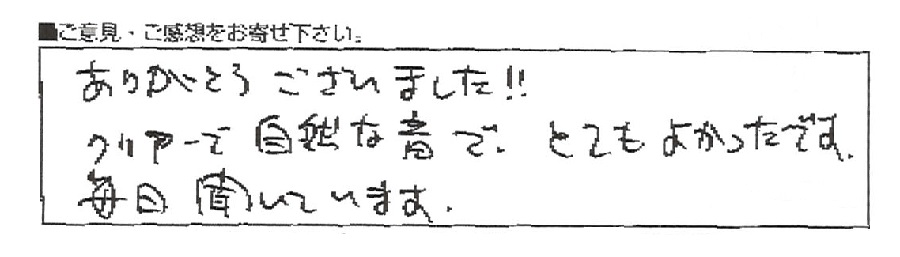 ■ご意見・ご感想をお寄せ下さい。
ありがとうございました!!
クリアーで自然な音で、とてもよかったです。
毎日聞いています。